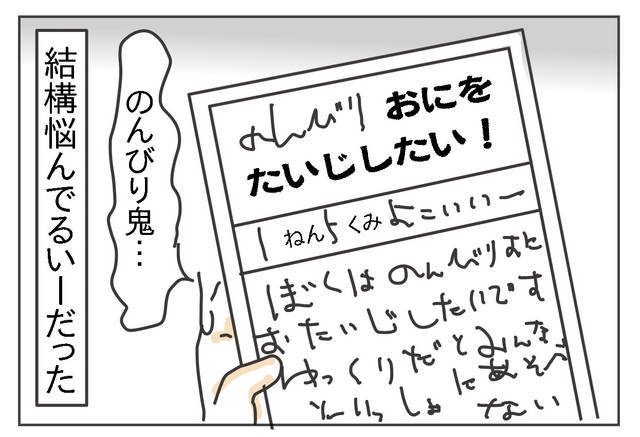 のんびり おにを
たいじしたい！
1 ねん 5 くみ よこいいー
ぼくは のんびりおに
おたいじしたいです
ゆっくりだとみんな
といっしょにあそべ
ない
のんびり鬼…
結構悩んでるいーだった